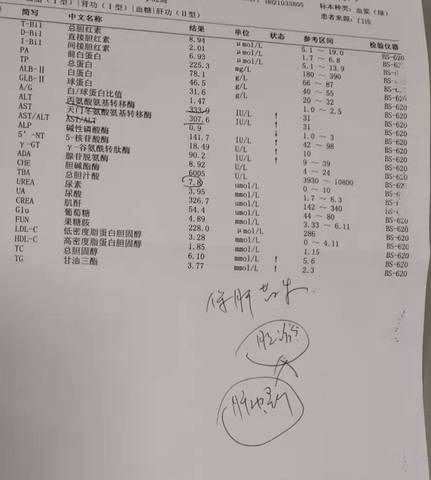 胆(I型)|肾功(I型)|血糖|肝功(II型)
1H21033805
标本种类:血浆(绿)
患者来源:门诊
简写 中文名称 结果 单位 状态 参考区间 检验仪器
T-Bil 总胆红素 8.94 μmol/L 5.1 - 19.0 BS-620
D-Bil 直接胆红素 2.01 μmol/L 1.7 - 6.8
I-Bil 间接胆红素 6.93 μmol/L 5.1 - 13.9
PA 前白蛋白 225.3 mg/L 180 ~ 390
TP 总蛋白 78.1 g/L 66 ~ 87
ALB-II 白蛋白 46.5 g/L 40 ~ 55
GLB-II 球蛋白 31.6 g/L 20 ~ 32
A/G 白/球蛋白比值 1.47 1.0 ~ 2.5
ALT 丙氨酸氨基转移酶 333.9 IU/L ↑ 31
AST 天门冬氨酸氨基转移酶 307.6 IU/L ↑ 31
AST/ALT AST/ALT 0.9 ↓ 1.0 ~ 3
ALP 碱性磷酸酶 141.7 IU/L ↑ 42 ~ 98
5'-NT 5-核苷酸酶 18.49 IU/L ↑ 10
γ-GT γ-谷氨酰转肽酶 90.2 IU/L ↑ 9 ~ 39
ADA 腺苷脱氨酶 8.92 U/L 4 ~ 24
CHE 胆碱酯酶 6005 U/L 3930 ~ 10800
TBA 总胆汁酸 7.8 umol/L 0 ~ 10
UREA 尿素 3.95 mmol/L 1.7 ~ 8.3
UA 尿酸 326.7 umol/L 142 ~ 340
CREA 肌酐 54.4 umol/L 44 ~ 80
Glu 葡萄糖 4.89 mmol/L 3.33 ~ 6.11
FUN 果糖胺 228.0 μmol/L 286
LDL-C 低密度脂蛋白胆固醇 3.28 mmol/L 0 ~ 4.11 BS-620
HDL-C 高密度脂蛋白胆固醇 1.85 mmol/L 1.15 BS-620
TC 总胆固醇 6.10 mmol/L ↑ 5.6 BS-620
TG 甘油三酯 3.77 mmol/L ↑ 2.3 BS-620
保肝